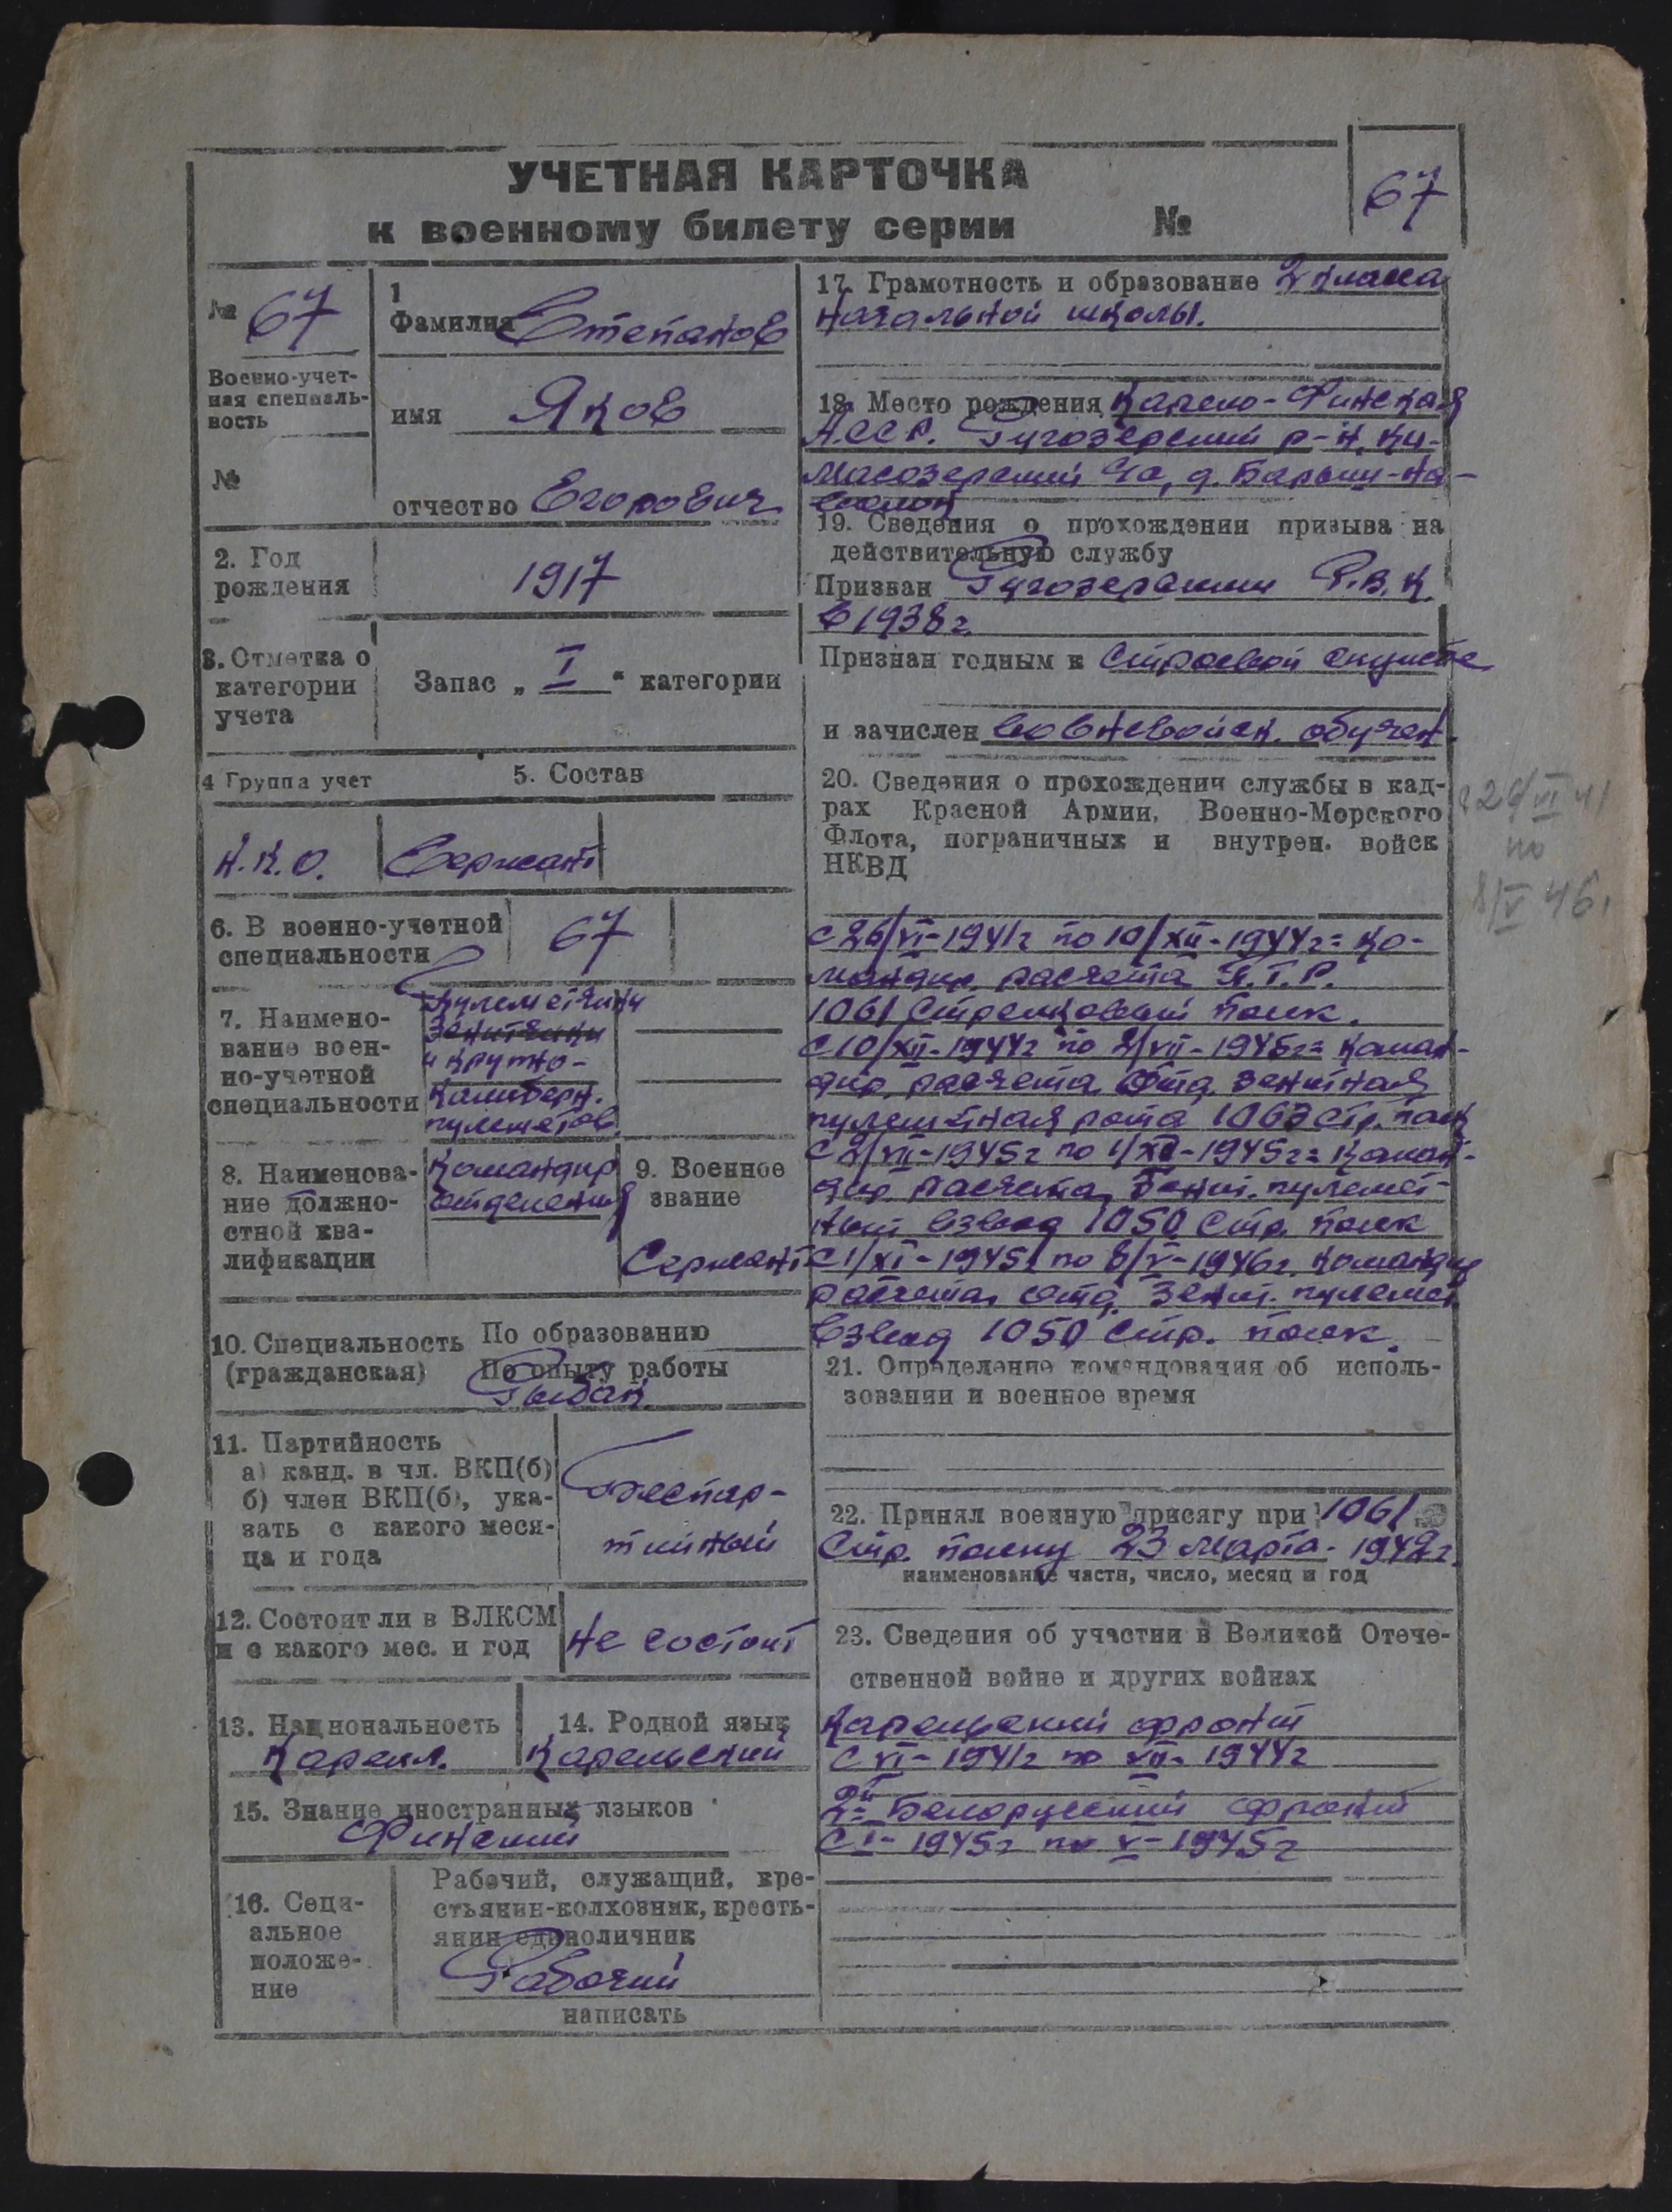 УЧЕТНАЯ КАРТОЧКА
к военному билету серии №
67
№ 67
Военно-учет-
ная специаль-
ность
№
1
Фамилия Степанов
имя Яков
отчество Егорович
2. Год
рождения
1917
3. Отметка о
категории
учета
Запас „ I " категории
4 Группа учет
5. Состав
Н.К.О.
Сержант
6. В военно-учетной
специальности
67
7. Наимено-
вание воен-
но-учетной
специальности
Пулеметчики
зенитчики
и крупно-
калиберн.
пулеметов
8. Наименова-
ние должно-
стной ква-
лификации
Командир
отделения
9. Военное
звание
Сержант
10. Специальность
(гражданская)
По образованию
По опыту работы
Рыбак
11. Партийность
а) канд. в чл. ВКП(б)
б) член ВКП(б), ука-
зать с какого меся-
ца и года
Беспар-
тийный
12. Состоит ли в ВЛКСМ
и с какого мес. и год
Не состоит
13. Национальность
Карел.
14. Родной язык
Карельский
15. Знание иностранных языков
Финский
16. Соци-
альное
положе-
ние
Рабочий, служащий, кре-
стьянин-колхозник, кресть-
янин единоличник
Рабочий
написать
17. Грамотность и образование 2 класса
начальной школы.
18. Место рождения Карело-Финская
А.С.С.Р. Ругозерский р-н, Ки-
масозерский с/с, д. Барыш-на-
19. Сведения о прохождении призыва на
действительную службу
Призван Ругозерским Р.В.К.
в 1938 г.
Признан годным к строевой службе
и зачислен во вневойск. обучен.
20. Сведения о прохождении службы в кад-
рах Красной Армии, Военно-Морского
Флота, пограничных и внутрен. войск
НКВД
с 26/VI 41
по
8/V 46.
с 26/VI-1941г по 10/XII-1944г = ко-
мандир расчета П.Т.Р.
1061 Стрелковый полк.
с 10/XII-1944г по 2/VII-1945г = коман-
дир расчета Отд. зенитная
пулеметная рота 1063 стр. полк
с 2/VII-1945г по 1/XI-1945г = коман-
дир расчета, Зенит. пулемет-
ный взвод 1050 Стр. полк
с 1/XI-1945г по 8/V-1946г. командир
расчета отд. Зенит. пулемет.
взвод 1050 Стр. полк.
21. Определение командования об исполь-
зовании и военное время
22. Принял военную присягу при 1061
Стр. полку 23 марта - 1942г.
наименование части, число, месяц и год
23. Сведения об участии в Великой Отече-
ственной войне и других войнах
Карельский фронт
с VI-1941г по XII-1944г
2ой Белорусский фронт
с I-1945г по V-1945г